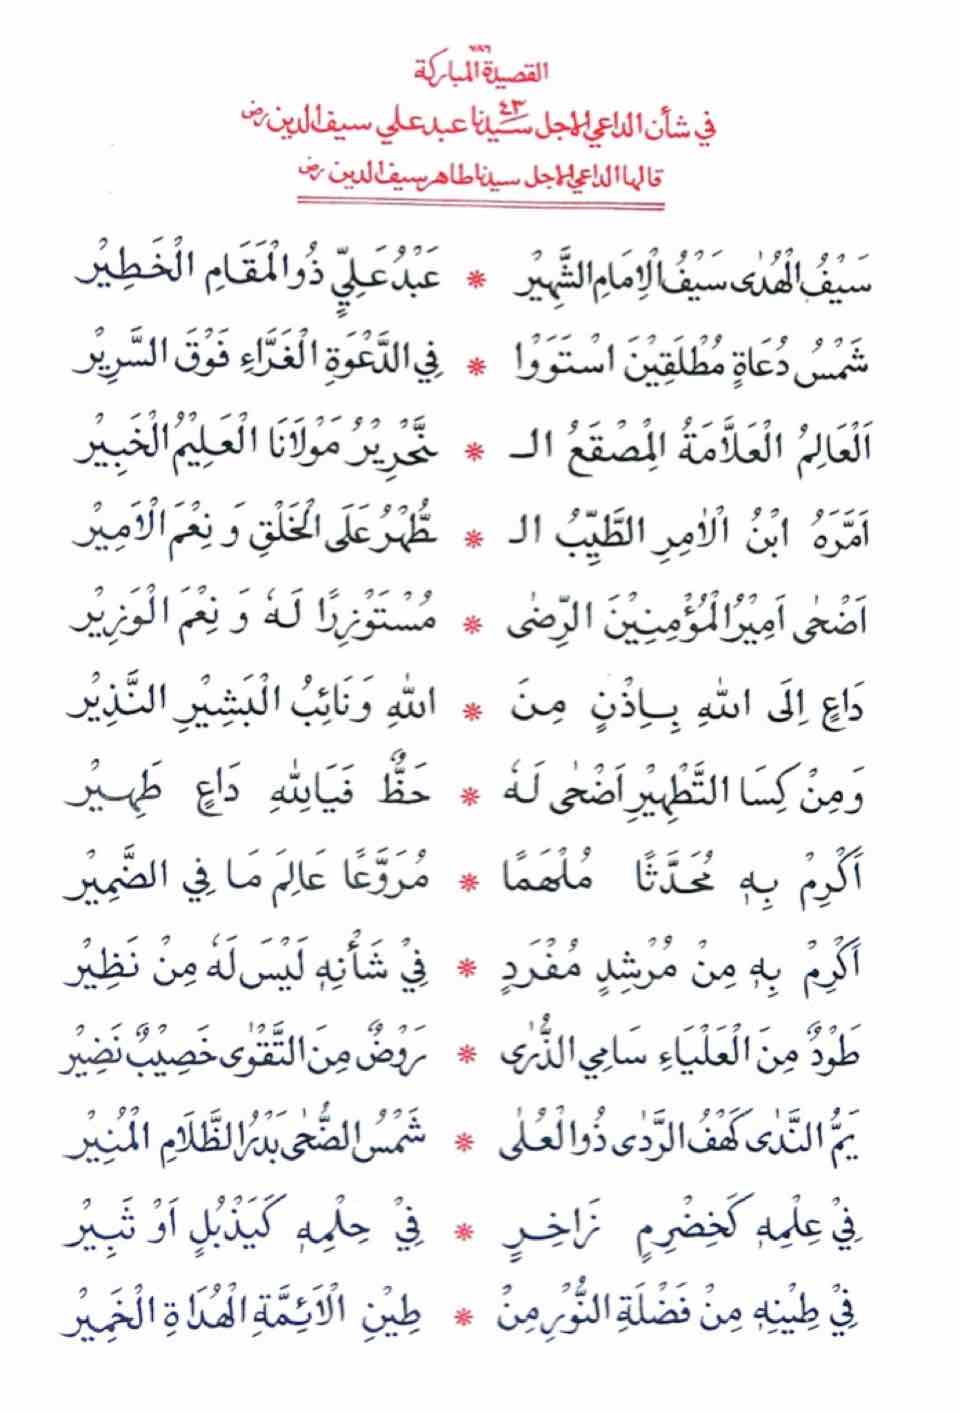 ٧٨٦
القصيدة المباركة
في شأن الداعي الاجل ٤٣ سيدنا عبد علي سيف الدين رض
قالها الداعي الاجل سيدنا طاهر سيف الدين رض
سَيْفُ الْهُدٰى سَيْفُ الْاِمَامِ الشَّهِيْر * عَبْدُ عَلِيٍّ ذُو الْمَقَامِ الْخَطِيْر
شَمْسُ دُعَاةٍ مُطْلَقِيْنَ اسْتَوَوْا * فِي الدَّعْوَةِ الْغَرَّاءِ فَوْقَ السَّرِيْر
اَلْعَالِمُ الْعَلَّامَةُ الْمِصْقَعُ الـ * نِّحْرِيْرُ مَوْلَانَا الْعَلِيْمُ الْخَبِيْر
اَمَّرَهُ ابْنُ الْاٰمِرِ الطَّيِّبُ الـ * طُّهْرُ عَلَى الْخَلْقِ وَ نِعْمَ الْاَمِيْر
اَضْحٰى اَمِيْرُ الْمُؤْمِنِيْنَ الرِّضٰى * مُسْتَوْزِرًا لَهٗ وَ نِعْمَ الْوَزِيْر
دَاعٍ اِلَى اللهِ بِاِذْنٍ مِنَ * اللهِ وَ نَائِبُ الْبَشِيْرِ النَّذِيْر
وَ مِنْ كِسَا التَّطْهِيْرِ اَضْحٰى لَهٗ * حَظٌّ فَيَا لِلّٰهِ دَاعٍ طَهِيْر
اَكْرِمْ بِهٖ مُحَدَّثًا مُلْهَمًا * مُرَوَّعًا عَالِمَ مَا فِي الضَّمِيْر
اَكْرِمْ بِهٖ مِنْ مُرْشِدٍ مُفْرَدٍ * فِيْ شَأْنِهٖ لَيْسَ لَهٗ مِنْ نَظِيْر
طَوْدٌ مِنَ الْعَلْيَاءِ سَامِي الذُّرٰى * رَوْضٌ مِنَ التَّقْوٰى خَصِيْبٌ نَضِيْر
يَمُّ النَّدٰى كَهْفُ الرَّدٰى ذُو الْعُلٰى * شَمْسُ الضُّحٰى بَدْرُ الظَّلَامِ الْمُنِيْر
فِيْ عِلْمِهٖ كَخِضْرِمٍ زَاخِرٍ * فِيْ حِلْمِهٖ كَيَذْبُلٍ اَوْ ثَبِيْر
فِيْ طِيْنِهٖ مِنْ فَضْلَةِ النُّوْرِ مِنْ * طِيْنِ الْاَئِمَّةِ الْهُدَاةِ الْخَمِيْر